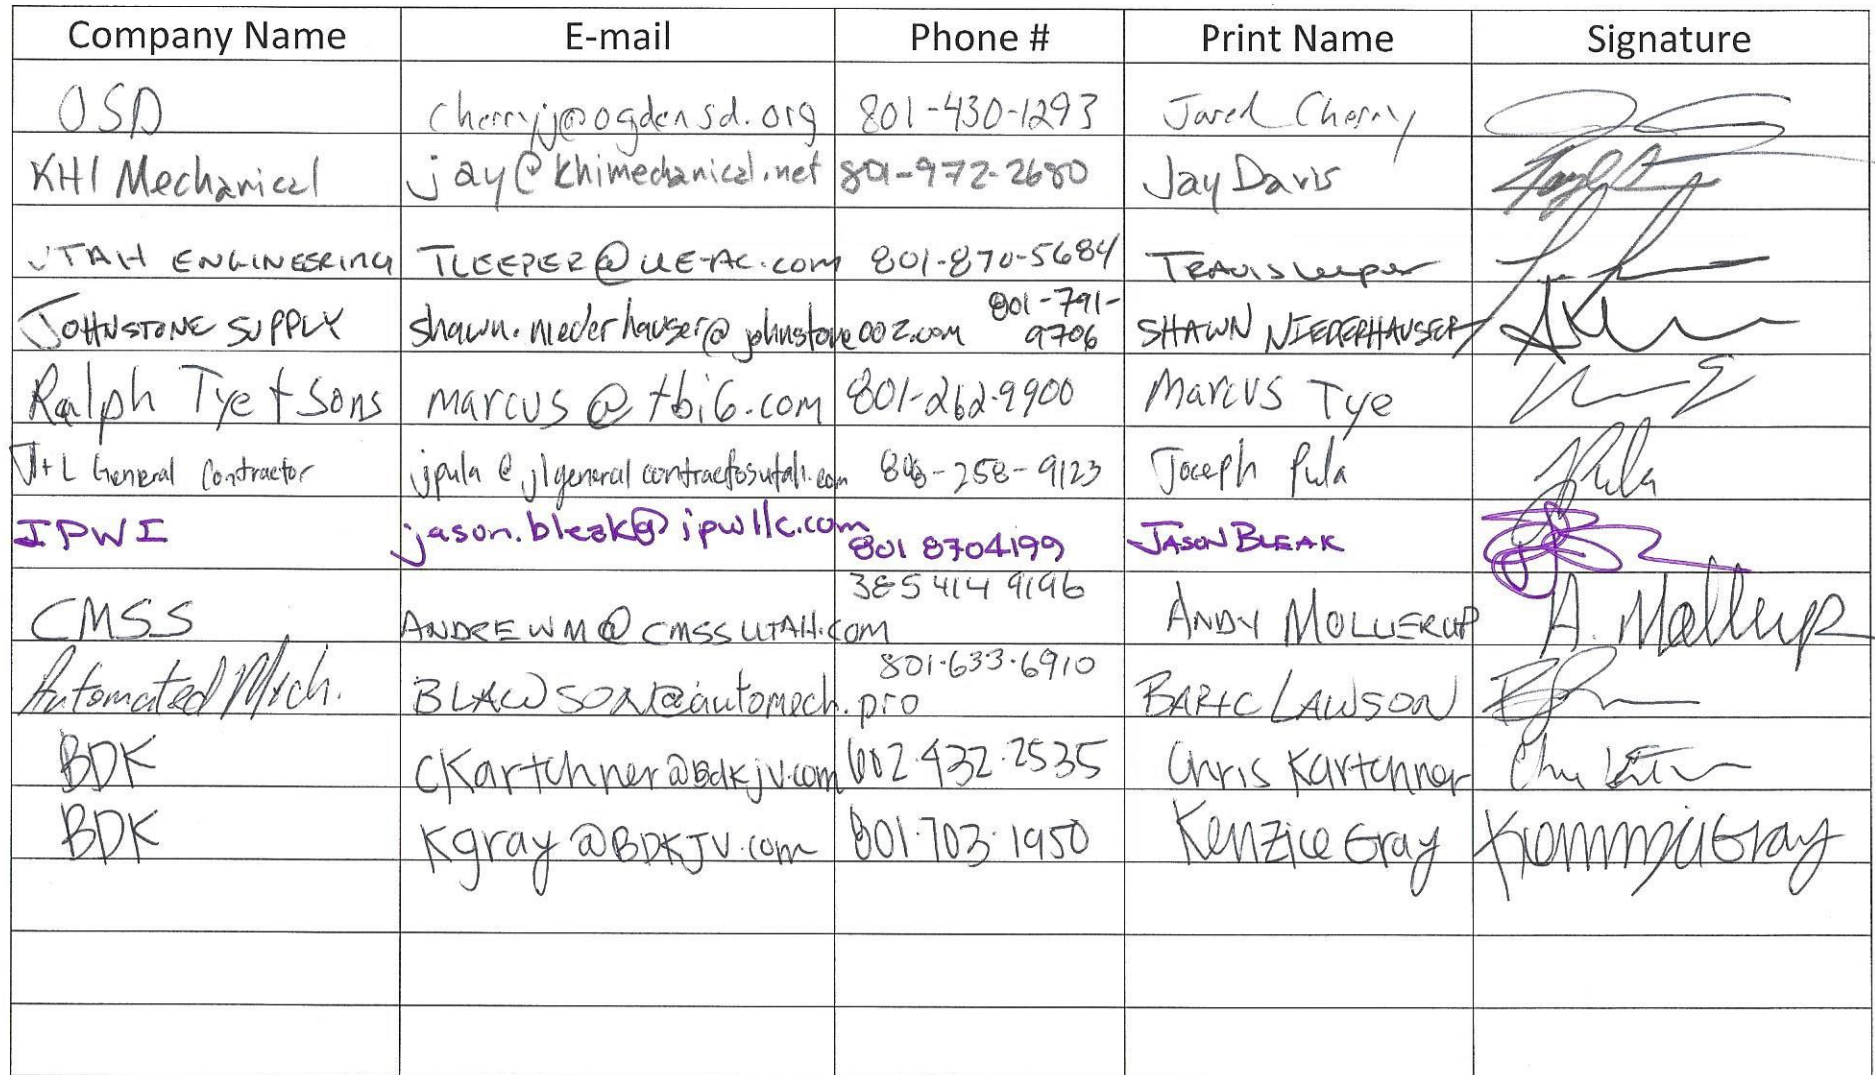 Company Name E-mail Phone # Print Name Signature
OSD cherryj@ogdensd.org 801-430-1293 Jared Cherry
KHI Mechanical jay@khimechanical.net 801-972-2680 Jay Davis
UTAH ENGINEERING TLEEPER@UE-AC.com 801-870-5684 TRAVIS Leeper
JOHNSTONE SUPPLY shawn.niederhauser@johnstone002.com 801-791-9706 SHAWN NIEDERHAUSER
Ralph Tye + Sons marcus@tbi6.com 801-262-9900 Marcus Tye
J+L General Contractor jpula@jlgeneralcontractorsutah.com 258-9123 Joseph Pula JPula
IPWI jason.bleak@ipwllc.com 801 8704199 JASON BLEAK
CMSS ANDREWM@CMSSUTAH.COM 385 414 9196 ANDY MOLLERUP A. Mollerup
Automated Mech. BLAWSON@automech.pro 801.633.6910 LAWSON
BDK CKartchner@Bdkjv.com 602.432.2535 Chris Kartchner
BDK Kgray@BDKJV.com 801.703.1950 Kenzie Gray